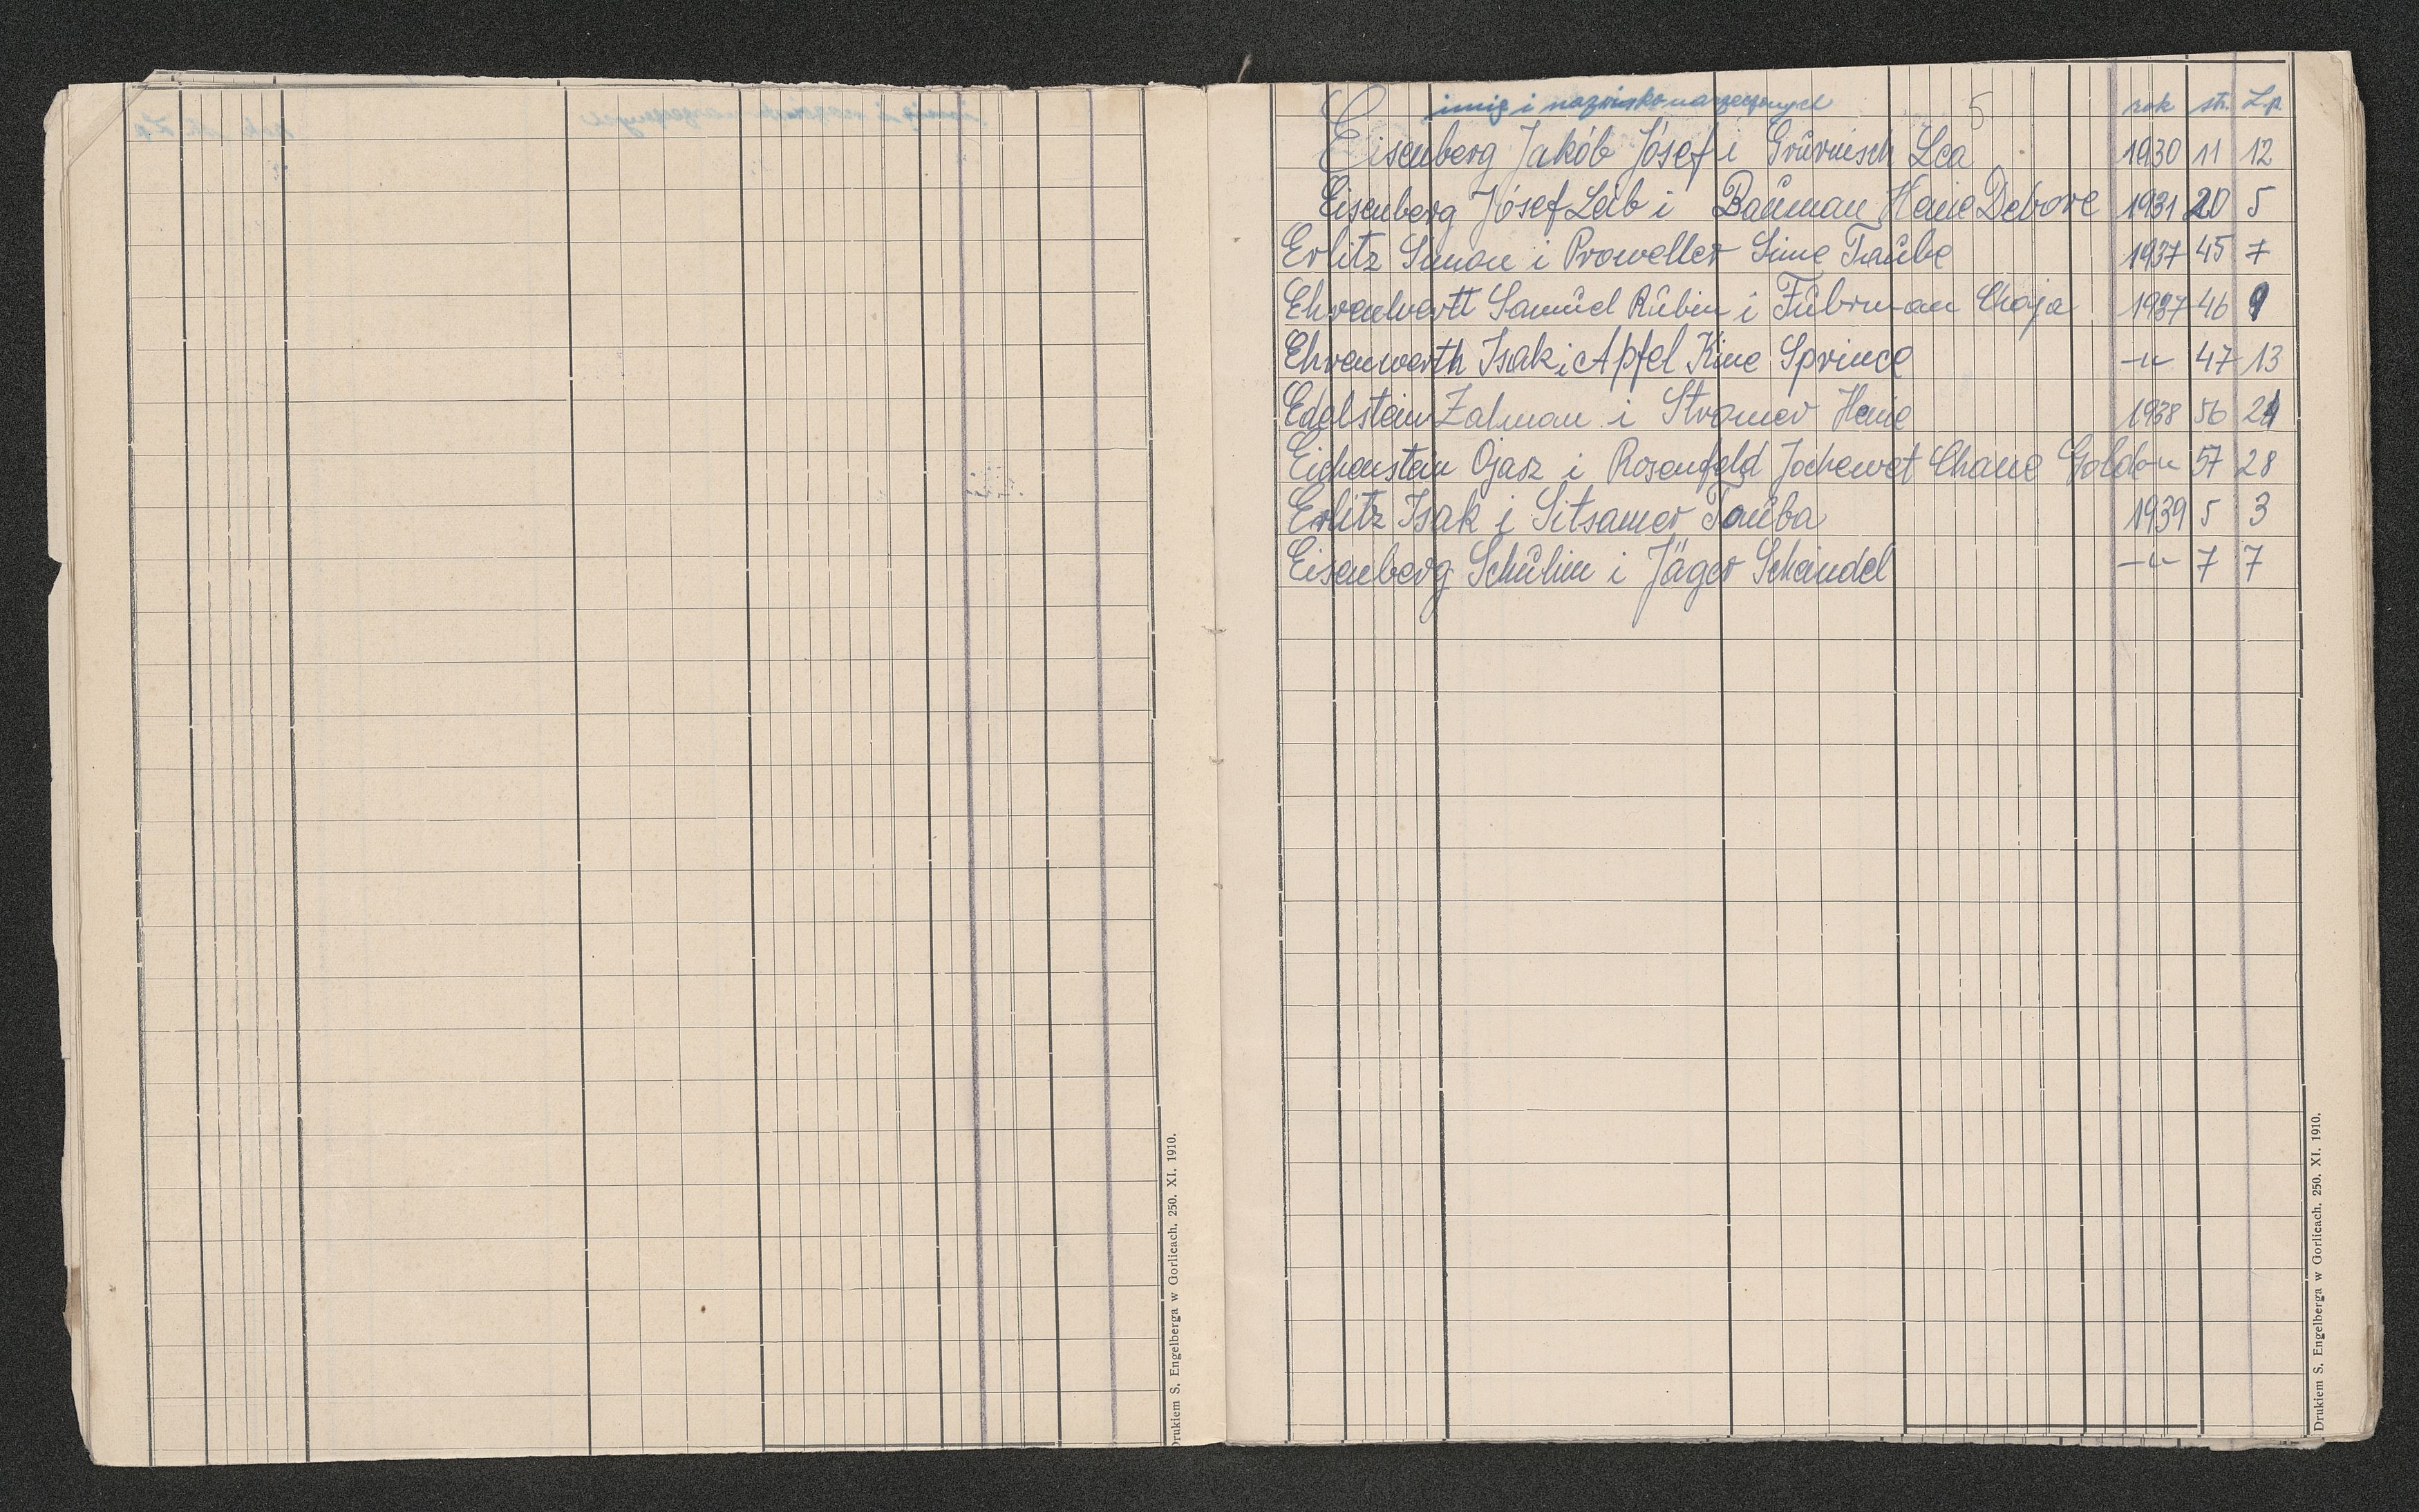 Drukiem S. Engelberga w Gorlicach. 250. XI. 1910.
E imię i nazwisko narzeczonych 5 rok str. L.p.
Eisenberg Jakób Józef i Grüvnisch Lea 1930 11 12
Eisenberg Józef Leib i Baüman Henie Debore 1931 20 5
Erlitz Simon i Proweller Sime Taübe 1937 45 7
Ehrenwertt Samüel Rübin i Fühvman Chaja 1937 46 9
Ehrenwerth Isak i Apfel Kine Sprince -"- 47 13
Edelstein Zalman i Stromer Henie 1938 56 24
Eichenstein Ojasz i Rosenfeld Jochewet Chane Golda -"- 57 28
Erlitz Isak i Sitsamer Taüba 1939 5 3
Eisenberg Schülim i Jäger Scheindel -"- 7 7
Drukiem S. Engelberga w Gorlicach. 250. XI. 1910.